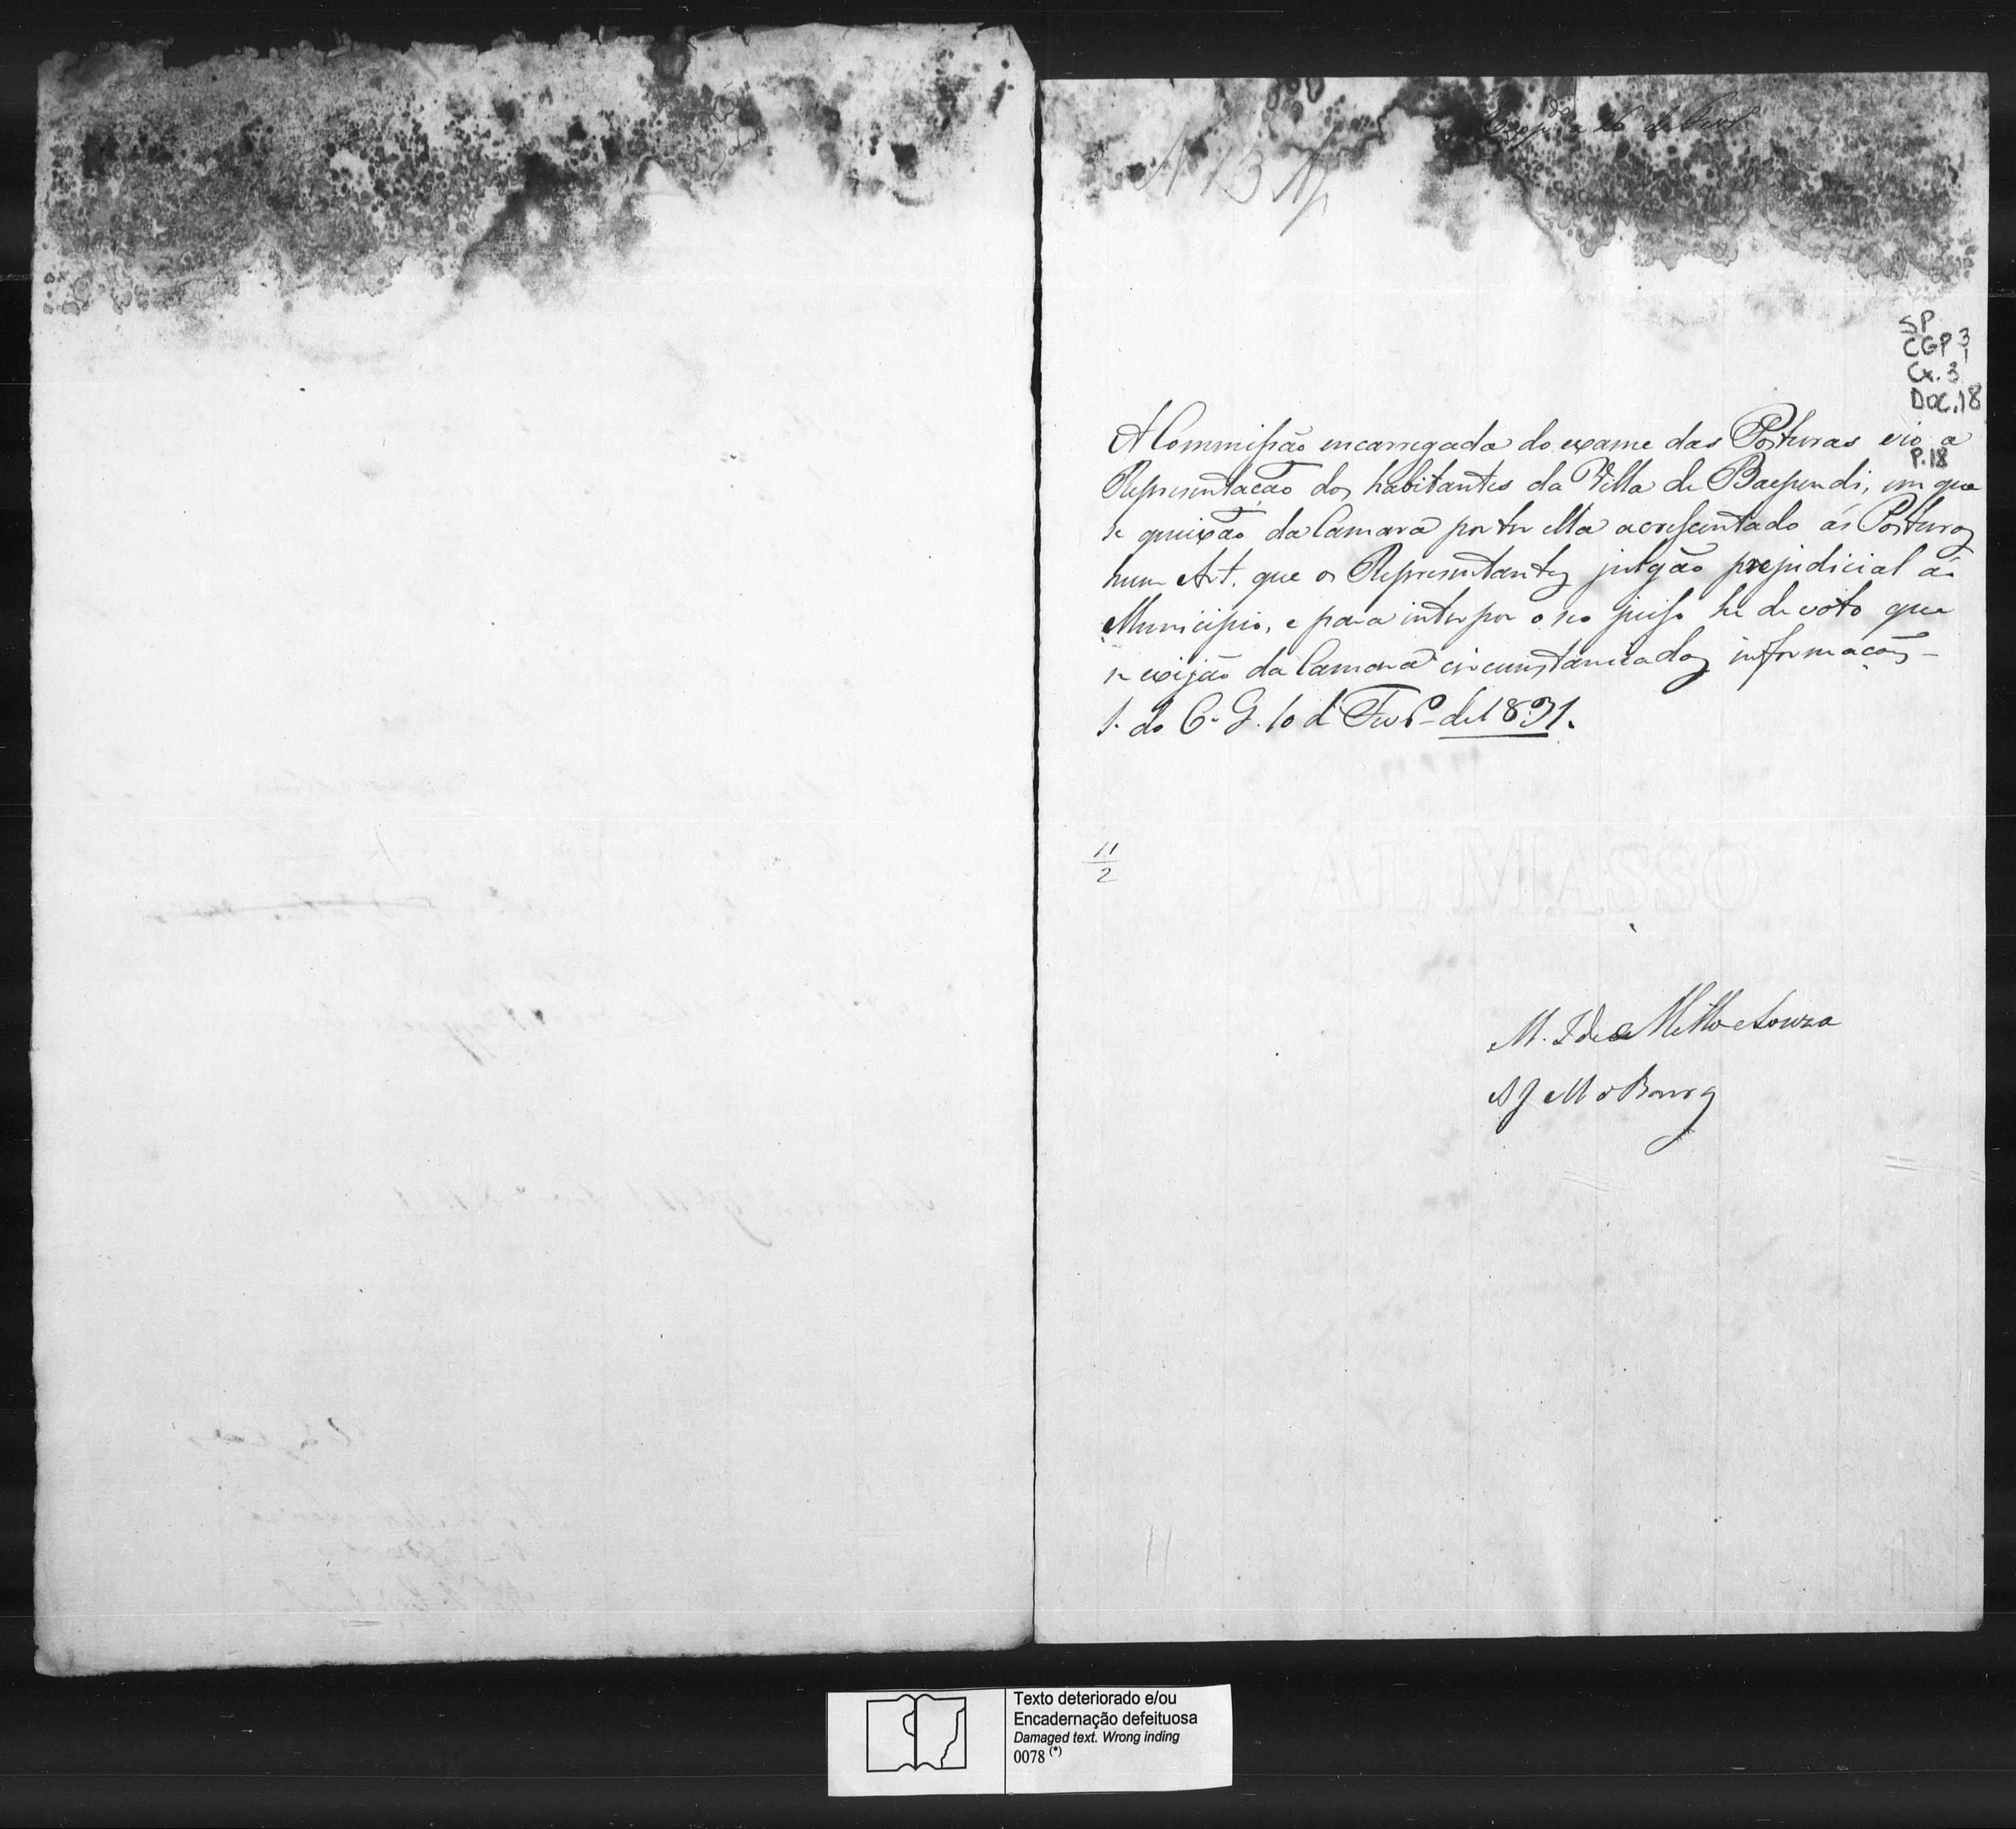 Exp.do a 26 de Fevr.o
N 13 A
SP
CGP 3
1
Cx. 3
DOC. 18
P. 18
A Commissão encarregada do exame das Posturas vio a
Representação dos habitantes da Villa de Baependi, em que
se queixão da Camara por ter ella acrescentado ás Posturas
hum Art. que os Representantes julgão prejudicial ao
Municipio, e para interpor o seo juiso he de voto que
se exijão da Camara circunstanciadas informações
S. do C. G. 10 de Fevr.o de 1831.
11
2
AL MASSO
M. I de Mello e Souza
Texto deteriorado e/ou
Encadernação defeituosa
Damaged text. Wrong inding
0078 (*)